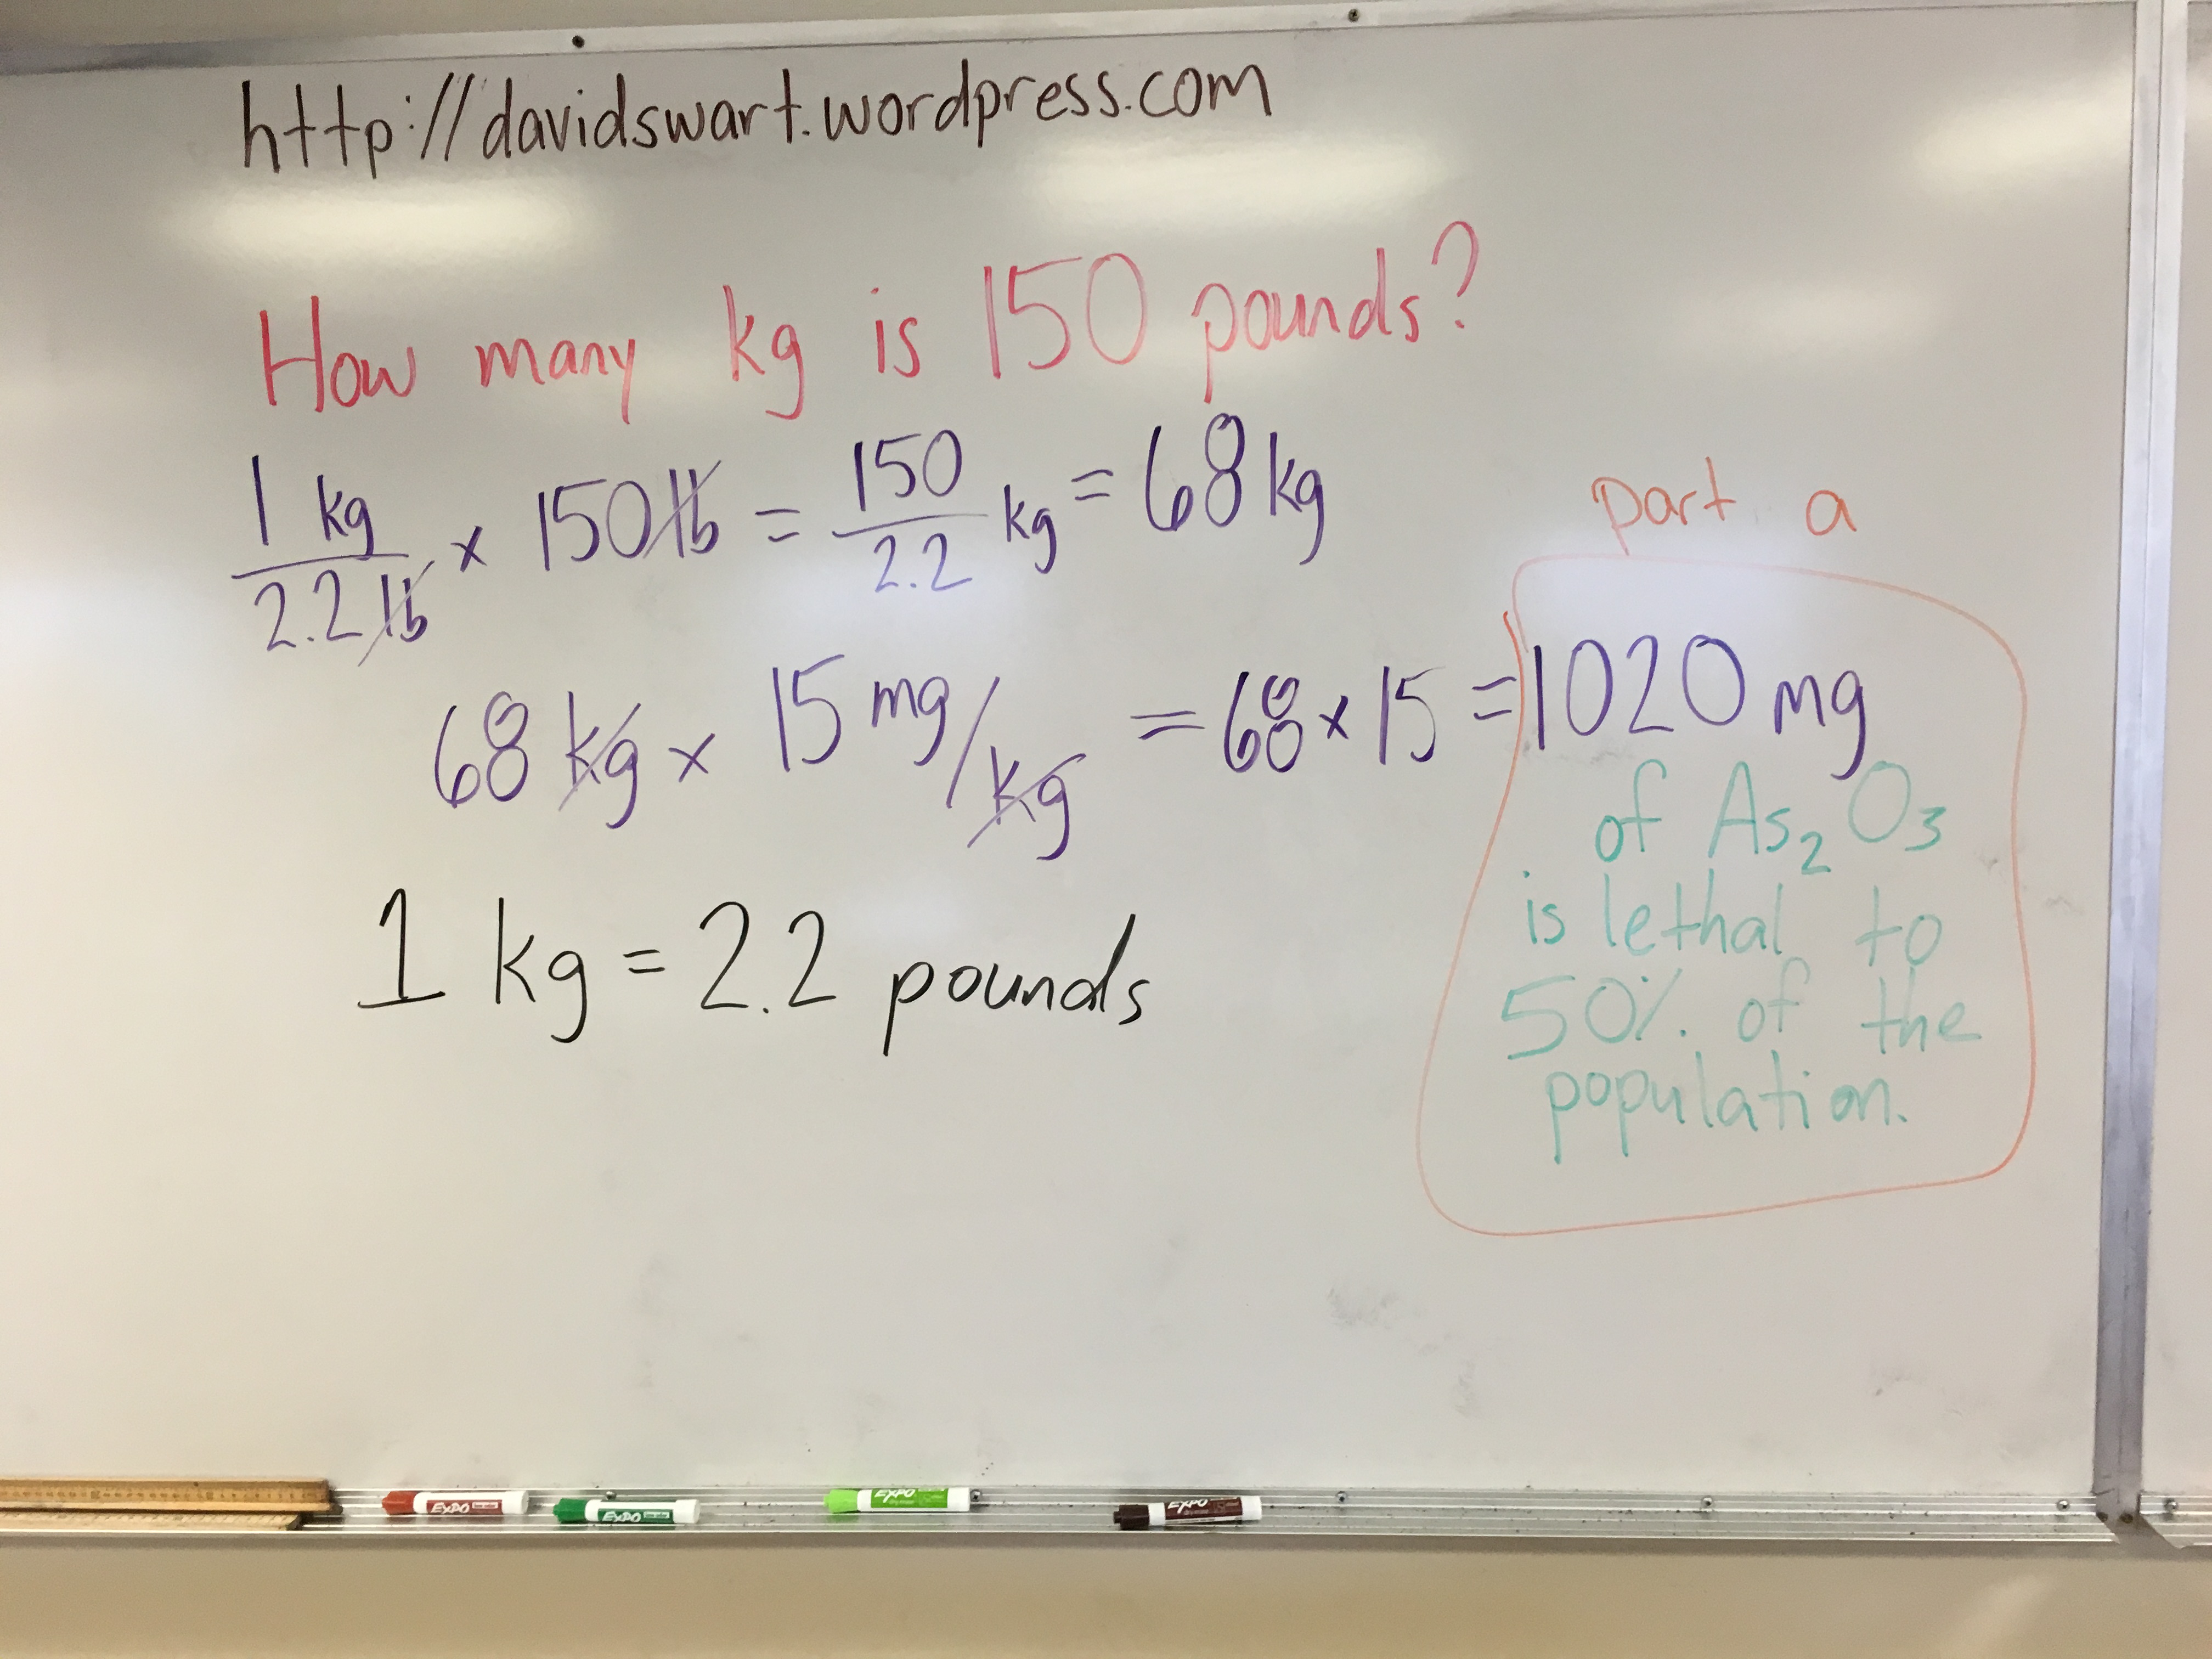 http://davidswart.wordpress.com
How many kg is 150 pounds?
1 kg / 2.2 lb x 150 lb = 150 / 2.2 kg = 68 kg
part a
68 kg x 15 mg/kg = 68 x 15 = 1020 mg
of As₂O₃
is lethal to
50% of the
population.
1 kg = 2.2 pounds
EXPO
EXPO
EXPO
EXPO